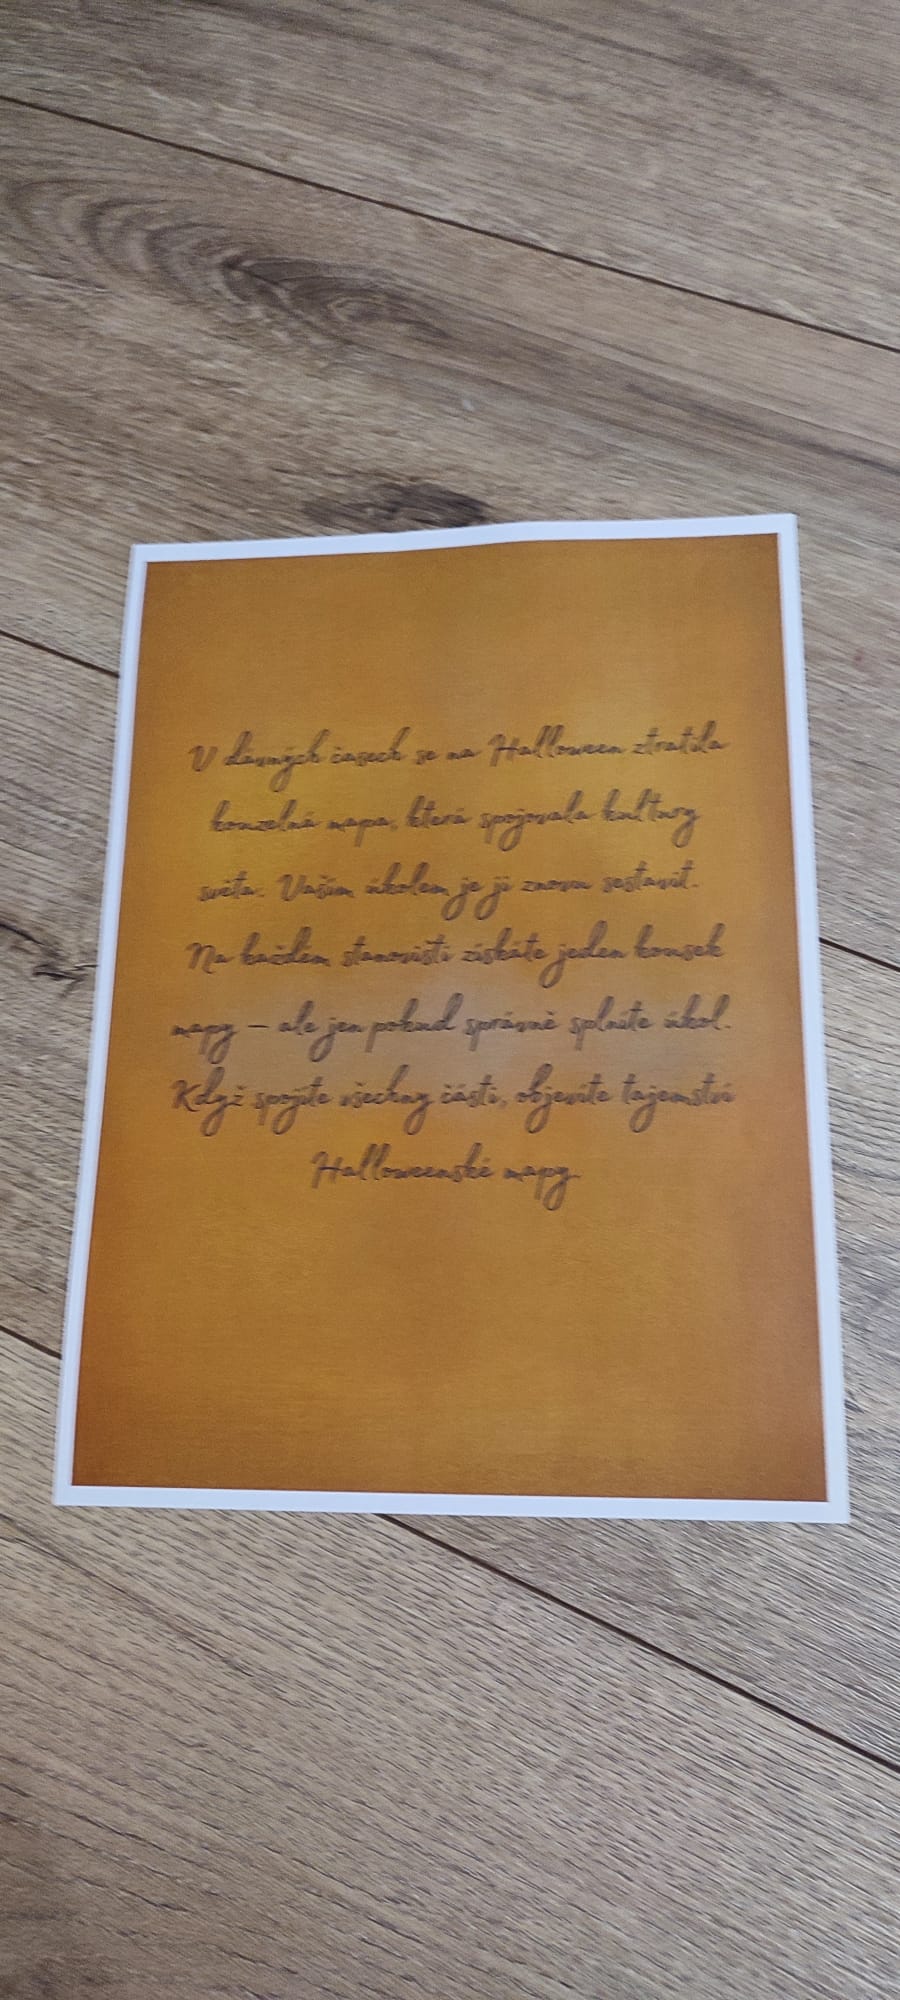 V dávných časech se na Halloween ztratila
kouzelná mapa, která spojovala kultury
světa. Vaším úkolem je ji znovu sestavit.
Na každém stanovišti získáte jeden kousek
mapy – ale jen pokud správně splníte úkol.
Když spojíte všechny části, objevíte tajemství
Halloweenské mapy.